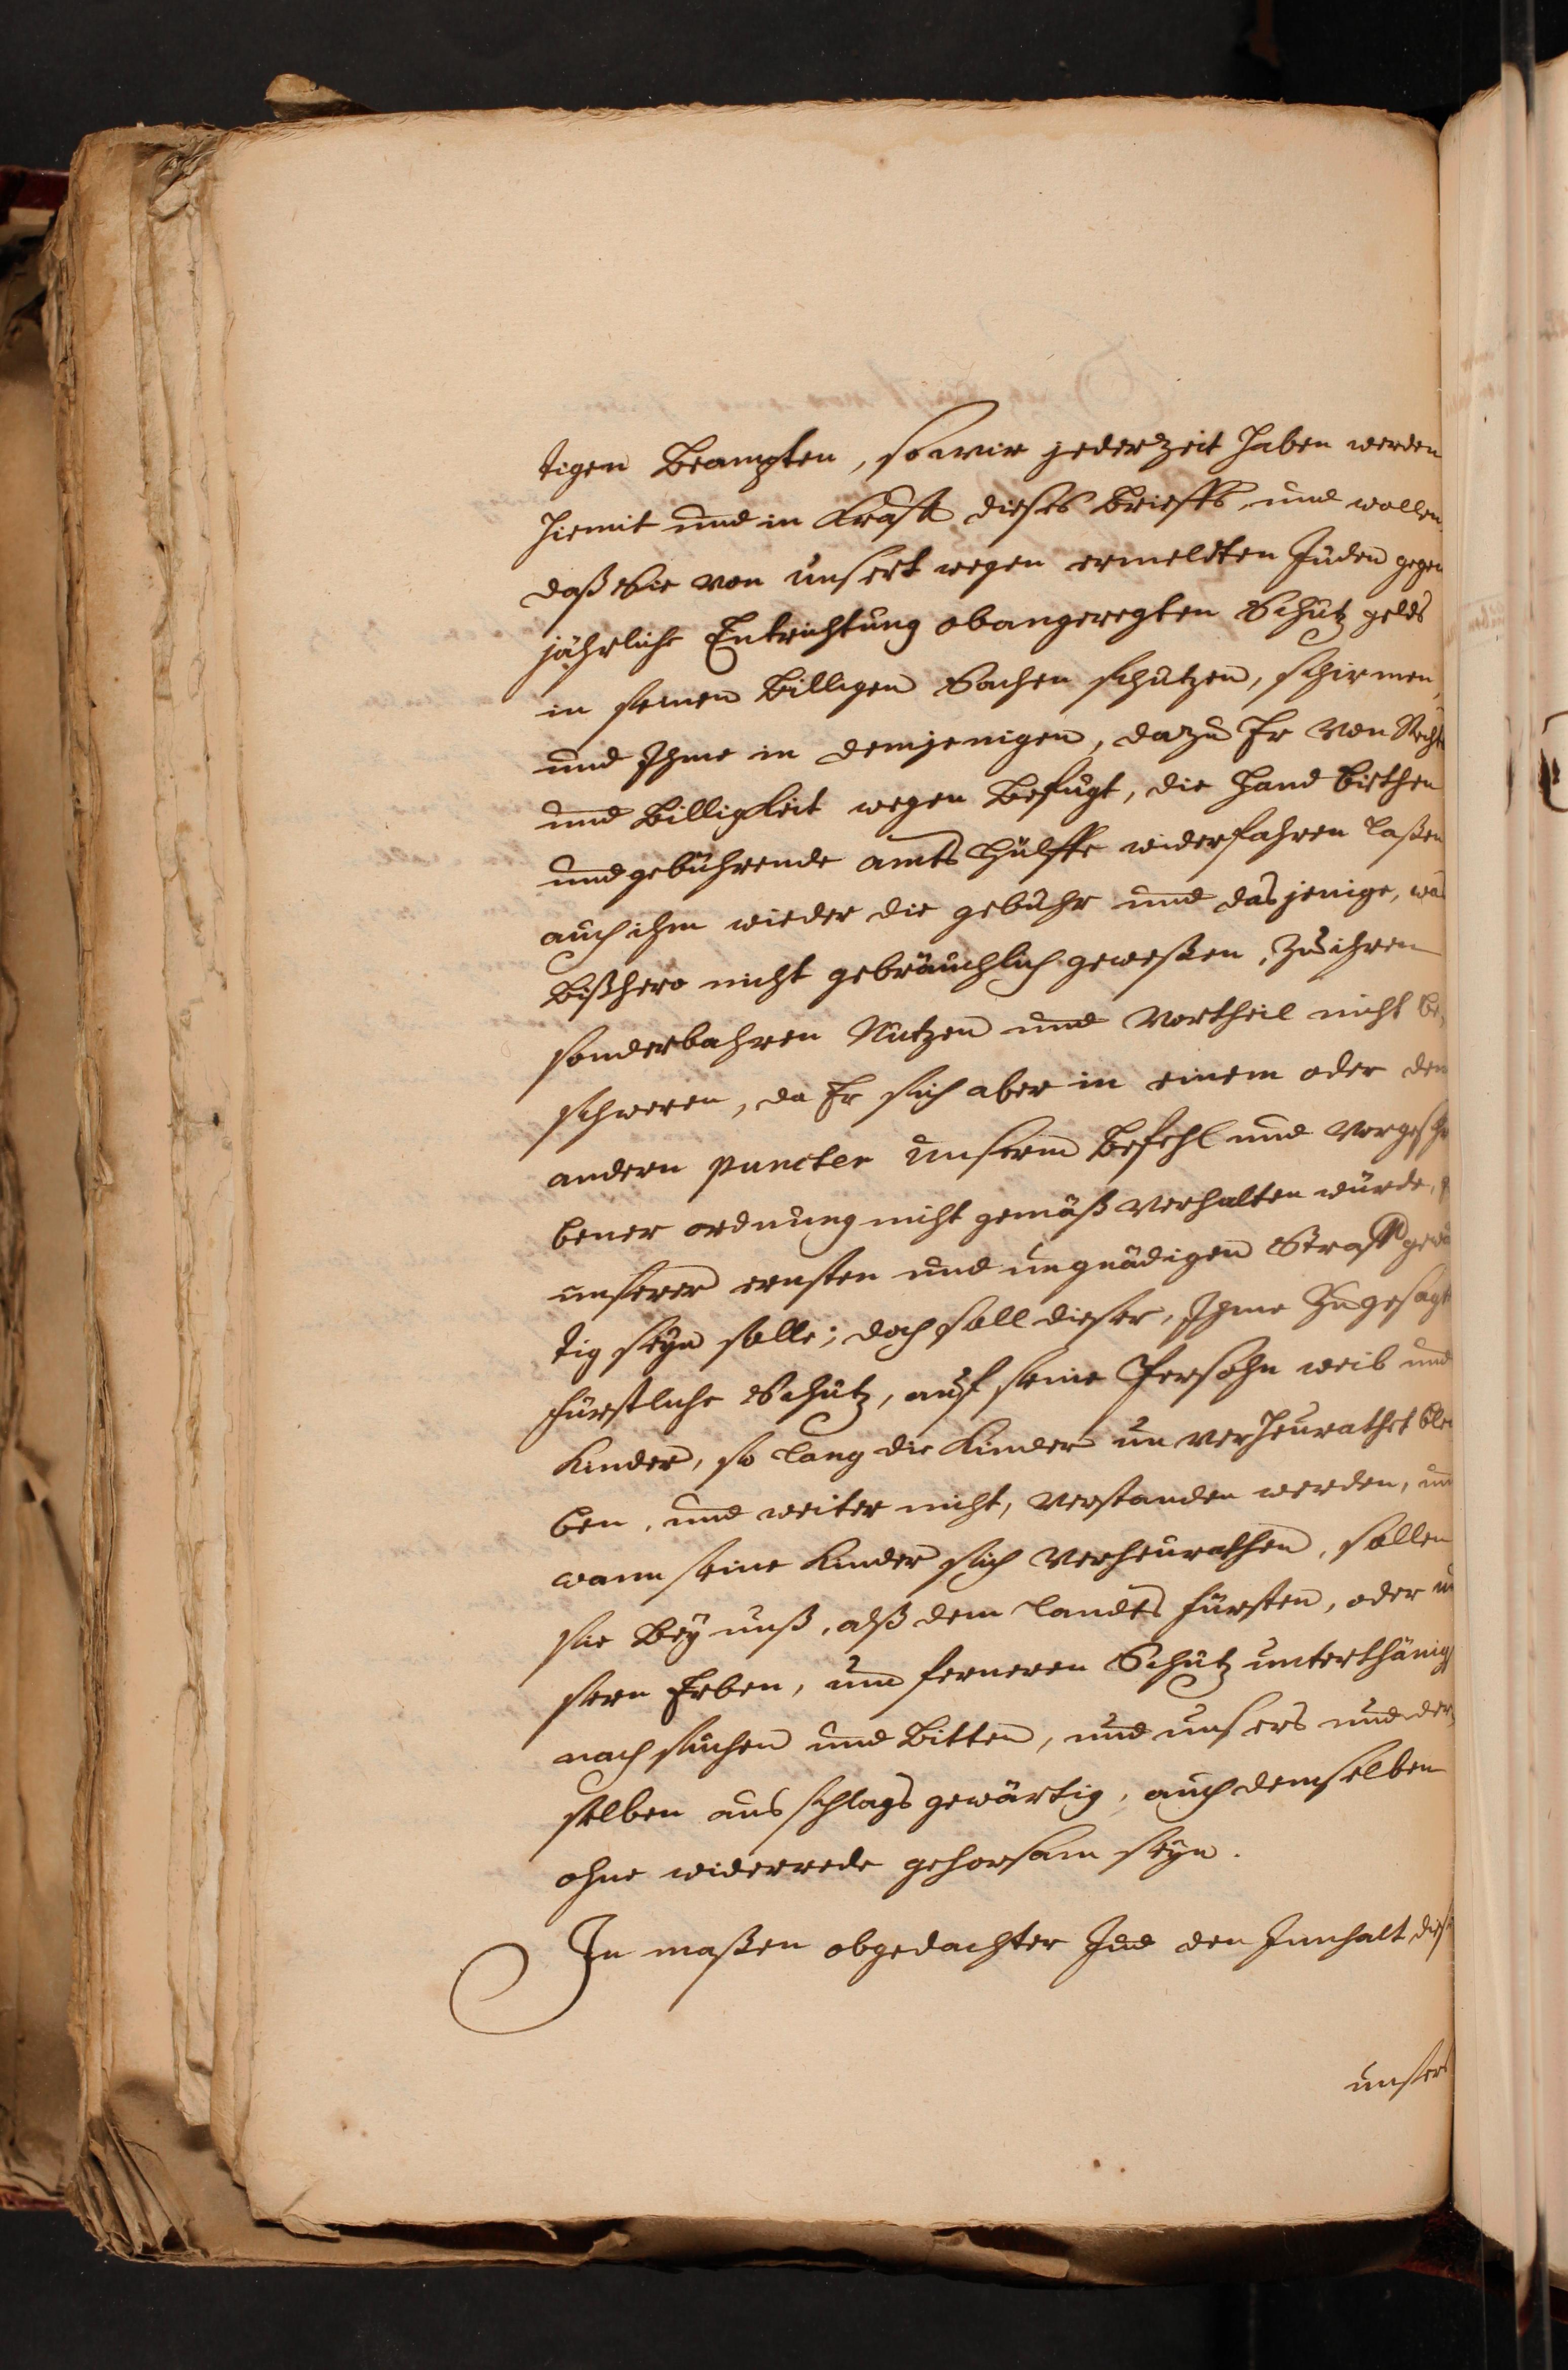 tigen Beampten, so wir jederzeit haben werden
hiemit und in Krafft dieses Brieffs, und wollen
daß Sie von unsert wegen ermeldten Juden gegen
jährliche Entrichtung obangeregten Schutz gelds
in seinen billigen Sachen schutzen, schirmen,
und Ihme in demjenigen, dazu Er von Rechts
und Billigkeit wegen befugt, die Hand biethen
und gebührende amts Hülffe widerfahren laßen
auch ihm wieder die gebuhr und dasjenige, was
bißhero nicht gebräuchlich geweßen, zu ihrem
sonderbahren Nutzen und Vortheil nicht be,
schweren, da Er sich aber in einem oder dem
andern puncten unserm Befehl und Vorgesch
bener ordnung nicht gemäß verhalten würde,
unserer ernsten und ungnädigen Straff gewä
tig seyn solle; doch soll dieser, Ihme zugesagt
fürstliche Schutz, auf seine Persohn weib und
Kinder, so lang die Kinder un verheurathet blei
ben, und weiter nicht, verstanden werden, und
wann seine Kinder sich verheurathen, sollen
sie bey unß, alß dem Landes fürsten, oder un
sern Erben, um ferneren Schutz unterthänigst
nach suchen und bitten, und unsers und der,
selben ausschlags gewärtig, auch demselben
ohne widerrede gehorsam seyn.
In maßen obgedachter Jud den Innhalt dieß
unsers